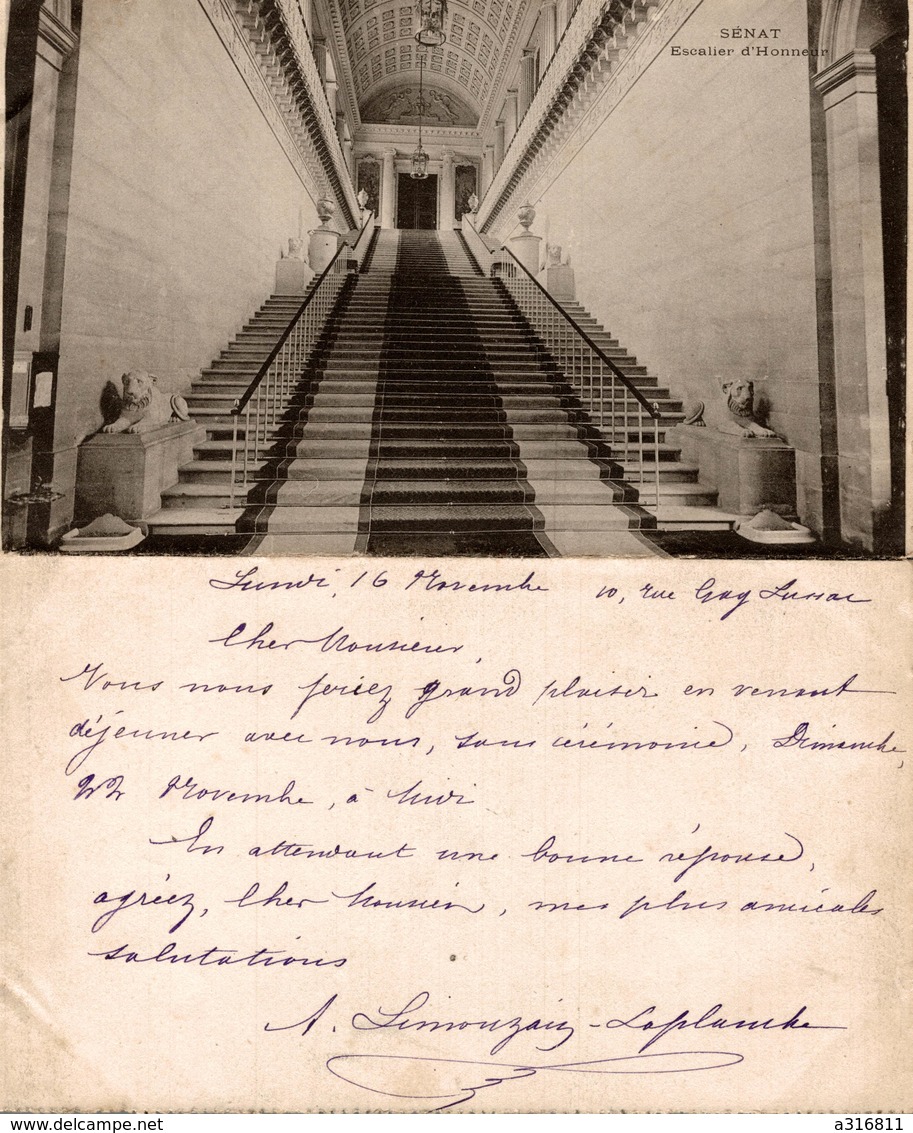 SÉNAT
Escalier d'Honneur
Lundi, 16 Novembre 10, rue Gay Lussac
Cher Monsieur,
Vous nous feriez grand plaisir en venant
déjeuner avec nous, sans cérémonie, Dimanche,
22 Novembre, à Midi
En attendant une bonne réponse,
agréez, Cher Monsieur, mes plus amicales
salutations
A. Limouzain-Laplanche
www.delcampe.net
a316811